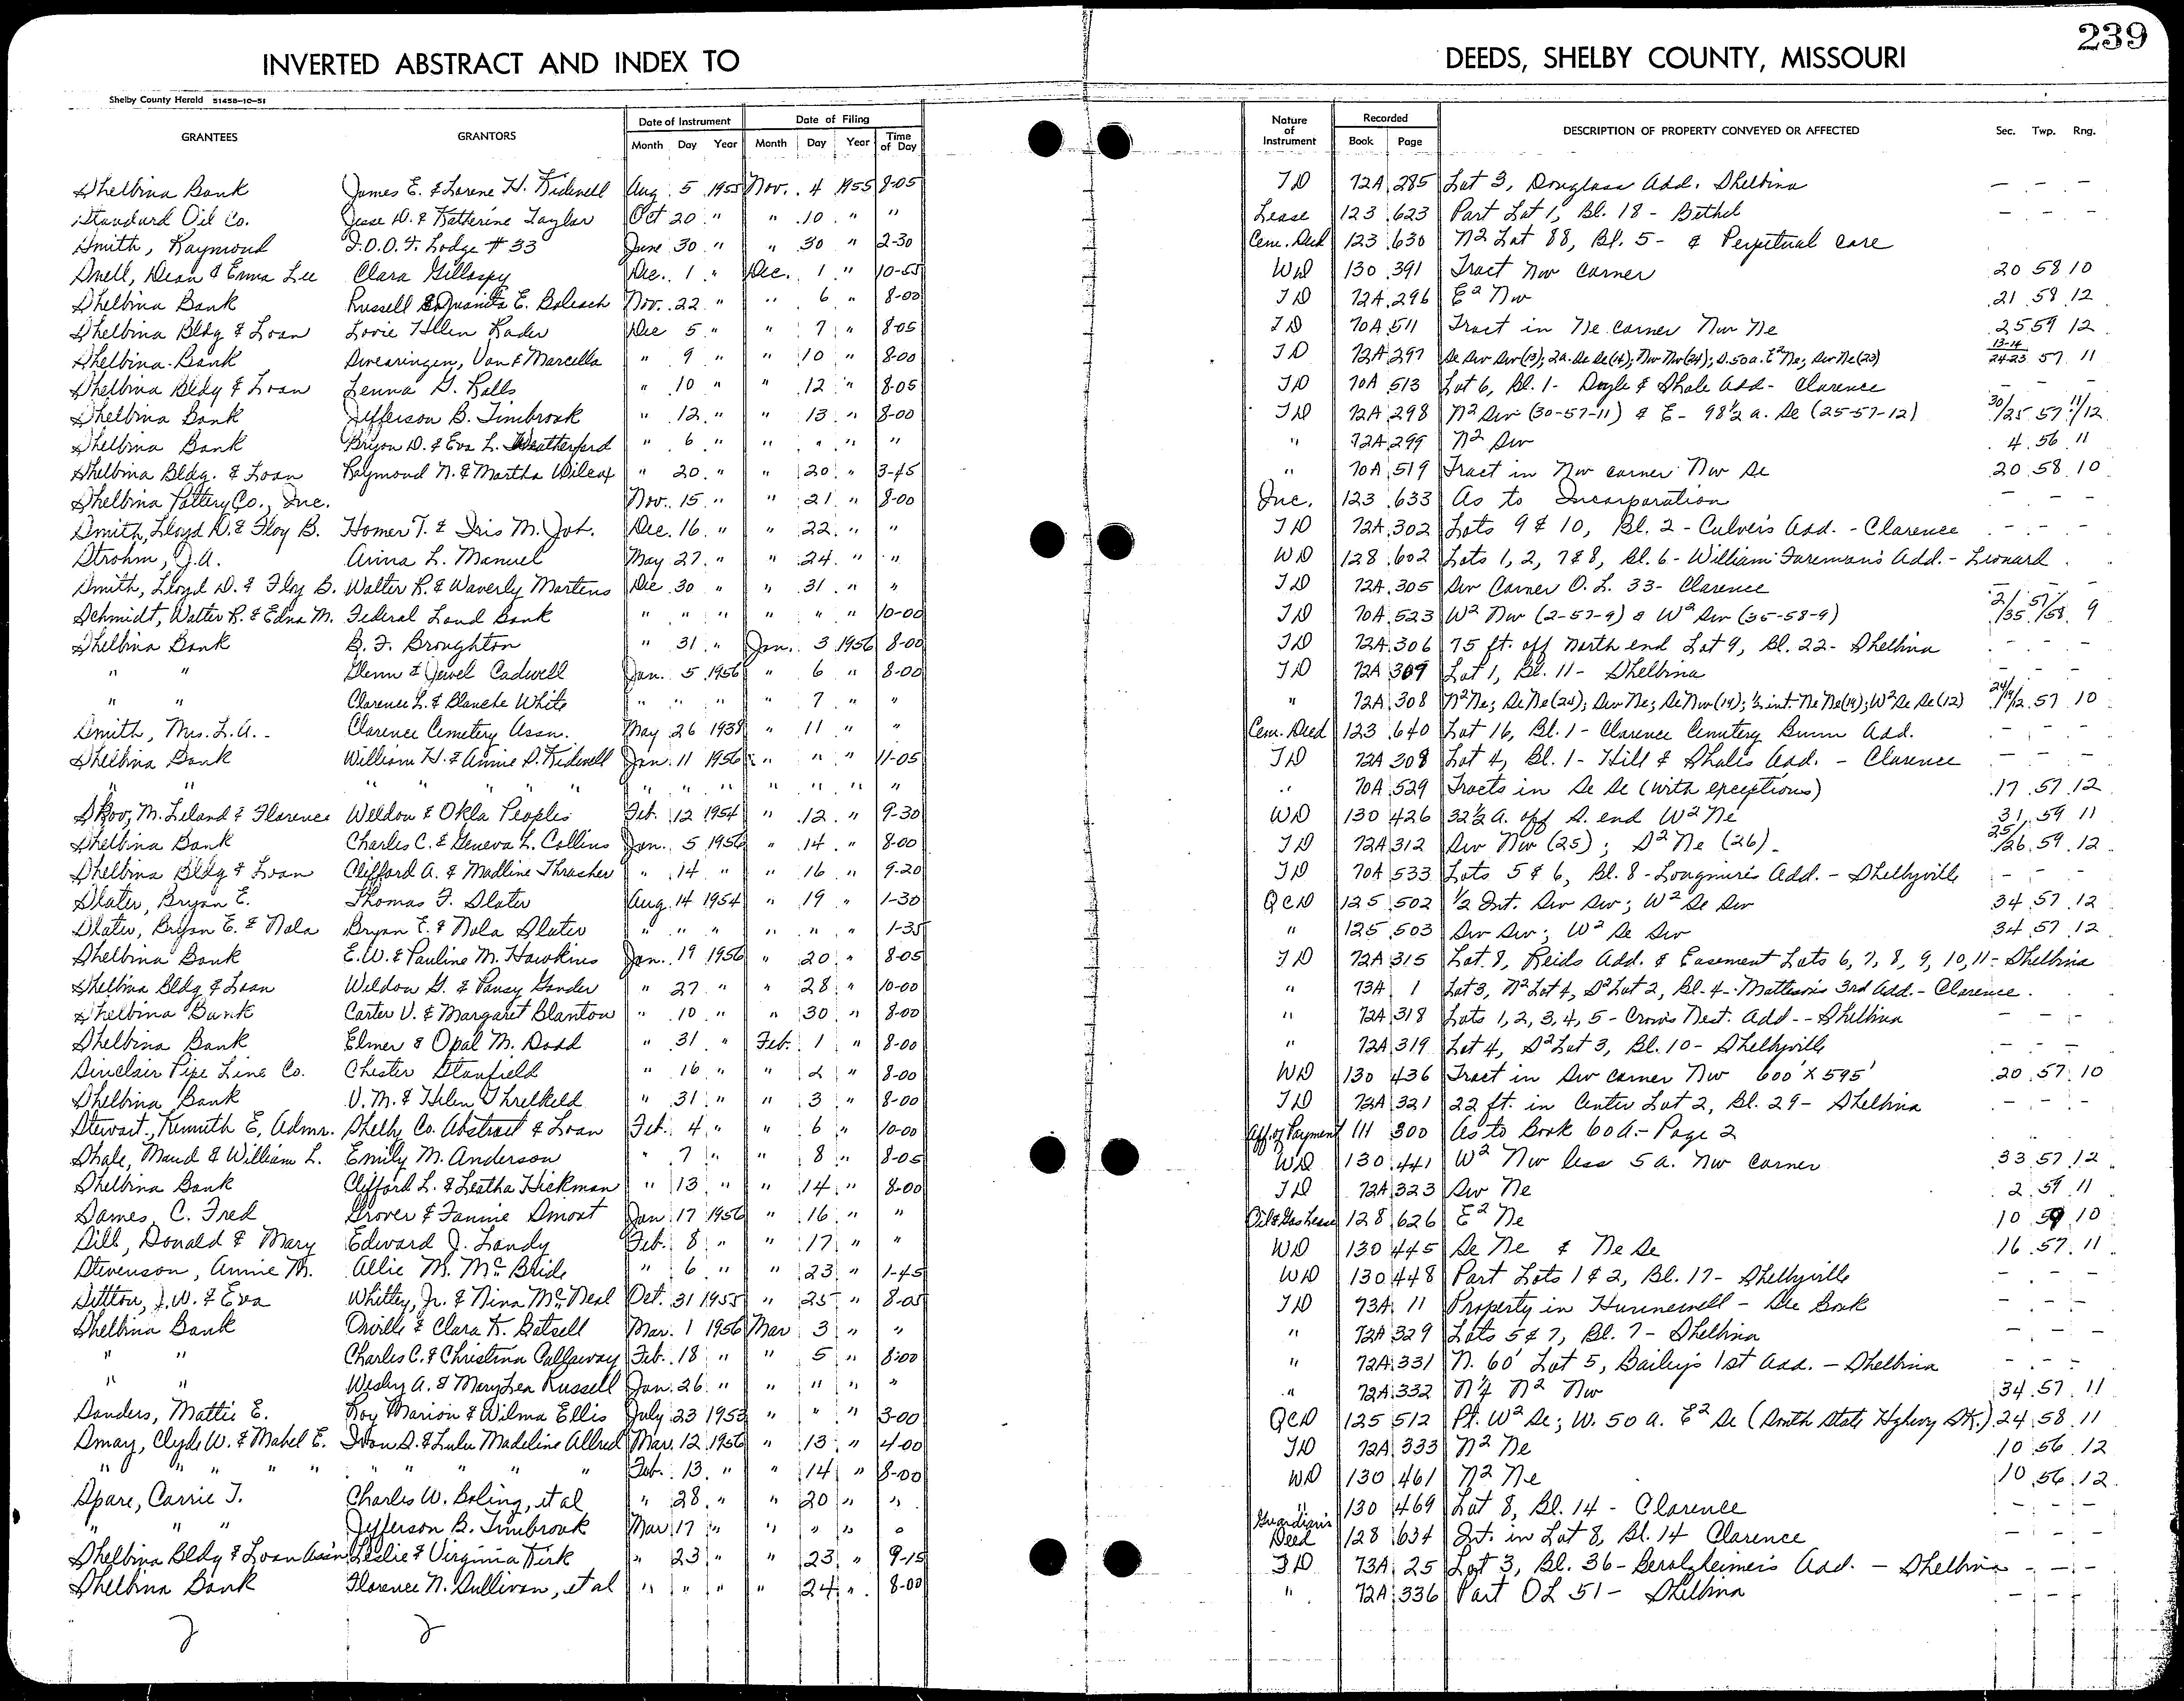 239
INVERTED ABSTRACT AND INDEX TO DEEDS, SHELBY COUNTY, MISSOURI
Shelby County Herald 51458-10-51
GRANTEES GRANTORS Date of Instrument Month Day Year Date of Filing Month Day Year Time of Day Nature of Instrument Recorded Book Page DESCRIPTION OF PROPERTY CONVEYED OR AFFECTED Sec. Twp. Rng.
Shelbina Bank James E. & Lorene H. Kidwell Aug. 5 1955 Nov. 4 1955 8-05 TD 72A 285 Lot 3, Douglass Add. Shelbina — — —
Standard Oil Co. Jesse D. & Katherine Taylor Oct 20 " " 10 " " Lease 123 623 Part Lot 1, Bl. 18 - Bethel — — —
Smith, Raymond I.O.O.F. Lodge # 33 June 30 " " 30 " 2-30 Cem. Deed 123 630 N2 Lot 88, Bl. 5 - & Perpetual care
Snell, Dean & Erma Lee Clara Gillaspy Dec. 1 " Dec. 1 " 10-55 WD 130 391 Tract Nw Corner 20 58 10
Shelbina Bank Russell & Juanita E. Baliach Nov. 22 " " 6 " 8-00 TD 72A 296 E2 Nw 21 58 12
Shelbina Bldg & Loan Lovie Helen Rader Dec 5 " " 7 " 8-05 TD 70A 511 Tract in Ne corner Nw Ne 25 59 12
Shelbina Bank Swearingen, Van & Marcella " 9 " " 10 " 8-00 TD 72A 297 Se Sw Sw (13); 2a. Se Se (14); Nw Nw (24); S. 50a. E2 Ne; Sw Ne (23) 13-14 24-23 57 11
Shelbina Bldg & Loan Lenna G. Ralls " 10 " " 12 " 8-05 TD 70A 513 Lot 6, Bl. 1 - Doyle & Shale Add - Clarence — — —
Shelbina Bank Jefferson B. Timbrook " 12 " " 13 " 8-00 TD 72A 298 N2 Sw (30-57-11) & E - 98½ a. Se (25-57-12) 30/25 57 11/12
Shelbina Bank Bryon D. & Eva L. Weatherford " 6 " " " " " " 72A 299 N2 Sw 4 56 11
Shelbina Bldg. & Loan Raymond N. & Martha Wilcox " 20 " " 20 " 3-45 " 70A 519 Tract in Nw corner Nw Se 20 58 10
Shelbina Pottery Co., Inc. Nov. 15 " " 21 " 8-00 Inc. 123 633 As to Incorporation — — —
Smith, Lloyd D. & Floy B. Homer T. & Iris M. Jot. Dec. 16 " " 22 " " TD 72A 302 Lots 9 & 10, Bl. 2 - Culver's Add. - Clarence — — —
Strohm, J.A. Anna L. Manuel May 27 " " 24 " " WD 128 602 Lots 1, 2, 7 & 8, Bl. 6 - William Foreman's Add. - Leonard
Smith, Lloyd D. & Floy B. Walter R. & Waverly Martens Dec 30 " " 31 " " TD 72A 305 Sw Corner O.L. 33 - Clarence — — —
Schmidt, Walter R. & Edna M. Federal Land Bank " " " " " " 10-00 TD 70A 523 W2 Nw (2-57-9) & W2 Sw (35-58-9) 2/35 57/58 9
Shelbina Bank B. F. Broughton " 31 " Jan. 3 1956 8-00 TD 72A 306 75 ft. off North end Lot 9, Bl. 22 - Shelbina — — —
" " Glenn & Jewel Cadwell Jan. 5 1956 " 6 " 8-00 TD 72A 309 Lot 1, Bl. 11 - Shelbina — — —
" " Clarence L. & Blanche White " " " " 7 " " " 72A 308 N2 Ne; Se Ne (24); Sw Ne; Se Nw (19); ½ int. Ne Ne (19); W2 Se Se (12) 24/19/12 57 10
Smith, Mrs. L.A. Clarence Cemetery Assn. May 26 1938 " 11 " " Cem. Deed 123 640 Lot 16, Bl. 1 - Clarence Cemetery Bunn Add. — — —
Shelbina Bank William H. & Annie D. Kidwell Jan. 11 1956 " " " 11-05 TD 72A 308 Lot 4, Bl. 1 - Hill & Shale's Add. - Clarence — — —
" " " " " " " " " " " " " 70A 529 Tracts in Se Se (with exceptions) 17 57 12
Skov, M. Leland & Florence Weldon & Okla Peoples Feb. 12 1954 " 12 " 9-30 WD 130 426 32½ a. off S. end W2 Ne 31 59 11
Shelbina Bank Charles C. & Geneva L. Collins Jan. 5 1956 " 14 " 8-00 TD 72A 312 Sw Nw (25); S2 Ne (26) 25/26 59 12
Shelbina Bldg & Loan Clifford A. & Madline Thrasher " 14 " " 16 " 9-20 TD 70A 533 Lots 5 & 6, Bl. 8 - Longmire's Add. - Shelbyville — — —
Slater, Bryan E. Thomas F. Slater Aug. 14 1954 " 19 " 1-30 QCD 125 502 ½ Int. Sw Sw; W2 Se Sw 34 57 12
Slater, Bryan E. & Nola Bryan E. & Nola Slater " " " " " " 1-35 " 125 503 Sw Sw; W2 Se Sw 34 57 12
Shelbina Bank E.W. & Pauline M. Hawkins Jan. 19 1956 " 20 " 8-05 TD 72A 315 Lot 8, Reids Add. & Easement Lots 6, 7, 8, 9, 10, 11 - Shelbina
Shelbina Bldg & Loan Weldon G. & Pansy Gander " 27 " " 28 " 10-00 " 73A 1 Lot 3, N2 Lot 4, S2 Lot 2, Bl. 4 - Matteson's 3rd Add. - Clarence
Shelbina Bank Carter V. & Margaret Blanton " 10 " " 30 " 8-00 " 72A 318 Lots 1, 2, 3, 4, 5 - Crow's Nest. Add - - Shelbina — — —
Shelbina Bank Elmer & Opal M. Dodd " 31 " Feb. 1 " 8-00 " 72A 319 Lot 4, S2 Lot 3, Bl. 10 - Shelbyville — — —
Sinclair Pipe Line Co. Chester Stanfield " 16 " " 2 " 8-00 WD 130 436 Tract in Sw corner Nw 600' X 595' 20 57 10
Shelbina Bank V. M. & Helen Threlkeld " 31 " " 3 " 8-00 TD 72A 321 22 ft. in Center Lot 2, Bl. 29 - Shelbina — — —
Stewart, Kenneth E, Admr. Shelby Co. Abstract & Loan Feb. 4 " " 6 " 10-00 Aff. of Payment 111 300 As to Book 60A - Page 2
Shale, Maud & William L. Emily M. Anderson " 7 " " 8 " 8-05 WD 130 441 W2 Nw less 5 a. Nw corner 33 57 12
Shelbina Bank Clifford L. & Leatha Hickman " 13 " " 14 " 8-00 TD 72A 323 Sw Ne 2 59 11
Sames, C. Fred Grover & Fannie Smoot Jan 17 1956 " 16 " " Oil & Gas Lease 128 626 E2 Ne 10 59 10
Sill, Donald & Mary Edward J. Landy Feb. 8 " " 17 " " WD 130 445 Se Ne & Ne Se 16 57 11
Stevenson, Annie M. Allie M. McBride " 6 " " 23 " 1-45 WD 130 448 Part Lots 1 & 2, Bl. 17 - Shelbyville — — —
Sitton, J.W. & Eva Whitley, Jr. & Nina McNeal Oct. 31 1955 " 25 " 8-05 TD 73A 11 Property in Hunnewell - See Book — — —
Shelbina Bank Orville & Clara K. Gatsell Mar. 1 1956 Mar 3 " " " 72A 329 Lots 5 & 7, Bl. 7 - Shelbina — — —
" " Charles C. & Christina Callaway Feb. 18 " " 5 " 8:00 " 72A 331 N. 60' Lot 5, Bailey's 1st Add. - Shelbina — — —
" " Wesley A. & Mary Lea Russell Jan. 26 " " " " " " 72A 332 N¼ N2 Nw 34 57 11
Sanders, Mattie E. Roy Marion & Wilma Ellis July 23 1953 " " " 3-00 QCD 125 512 Pt. W2 Se; W. 50 a. E2 Se (South State Hghwy Dk.) 24 58 11
Smay, Clyde W. & Mabel E. Ivan D. & Lulu Madeline Allred Mar. 12 1956 " 13 " 4-00 TD 72A 333 N2 Ne 10 56 12
" " " " " " " " " Feb. 13 " " 14 " 8-00 WD 130 461 N2 Ne 10 56 12
Spare, Carrie T. Charles W. Boling, et al " 28 " " 20 " " " 130 469 Lot 8, Bl. 14 - Clarence — — —
" " " Jefferson B. Timbrook Mar 17 " " " " " Guardian's Deed 128 634 Int. in Lot 8, Bl. 14 Clarence — — —
Shelbina Bldg & Loan Ass'n Leslie & Virginia Kirk " 23 " " 23 " 9-15 TD 73A 25 Lot 3, Bl. 36 - Beralzheimer's Add. - Shelbina — — —
Shelbina Bank Florence N. Sullivan, et al " " " " 24 " 8-00 " 72A 336 Part OL 51 - Shelbina — — —